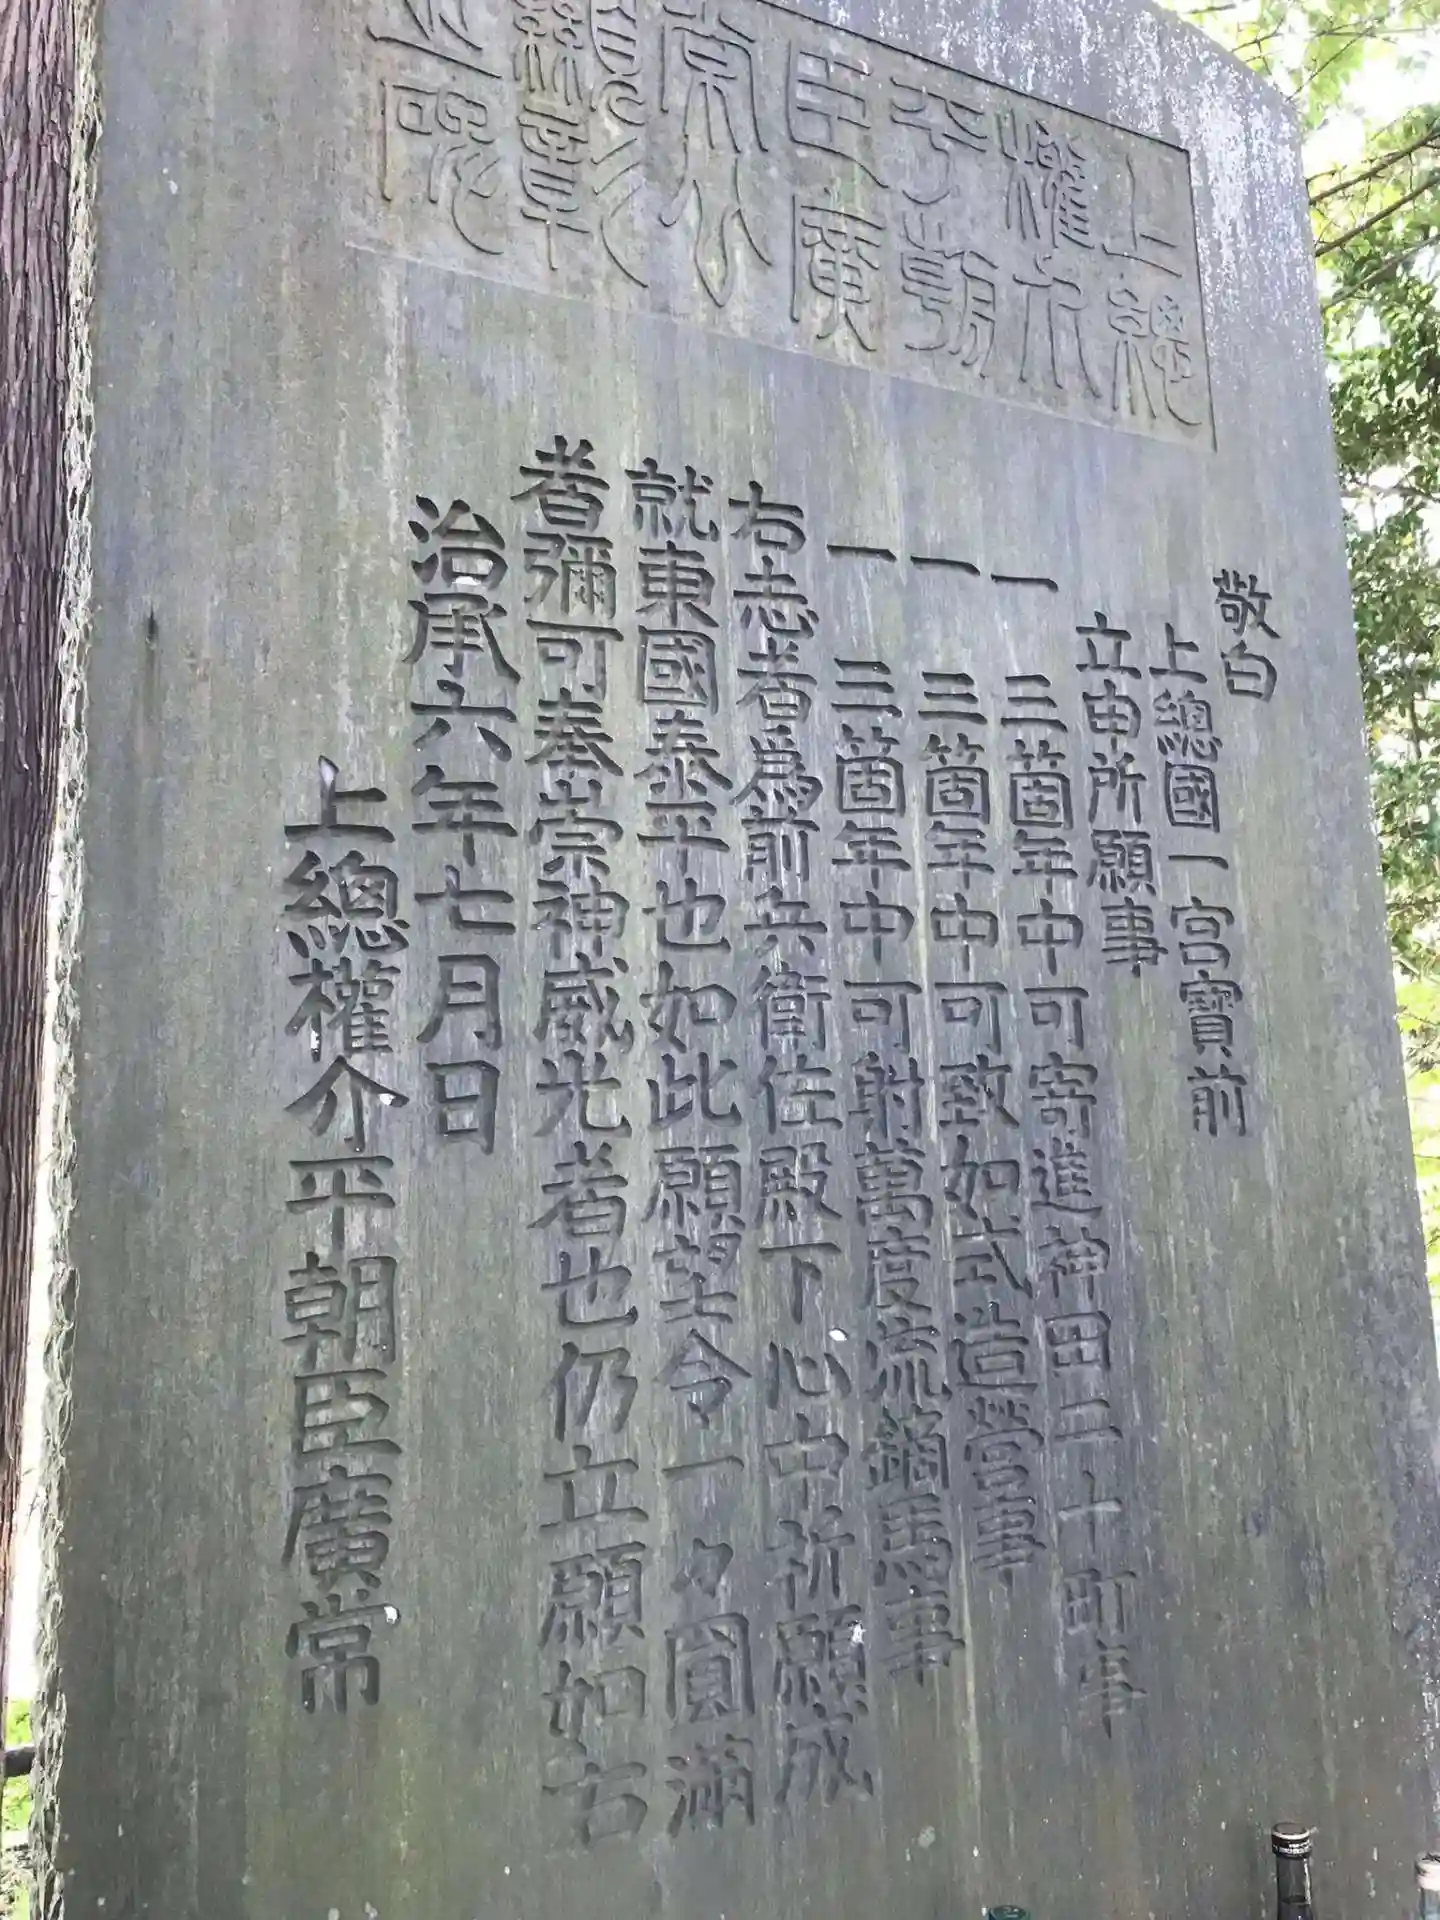 上總
權介
平朝
臣廣
常公
顯彰
之碑
敬白
上總國一宮寶前
立申所願事
一 三箇年中可寄進神田二十町事
一 三箇年中可致如式造營事
一 三箇年中可射萬度流鏑馬事
右志者爲前兵衛佐殿下心中祈願成
就東國泰平也如此願望令一々圓滿
者彌可奉崇神威光者也仍立願如右
治承六年七月日
上總權介平朝臣廣常